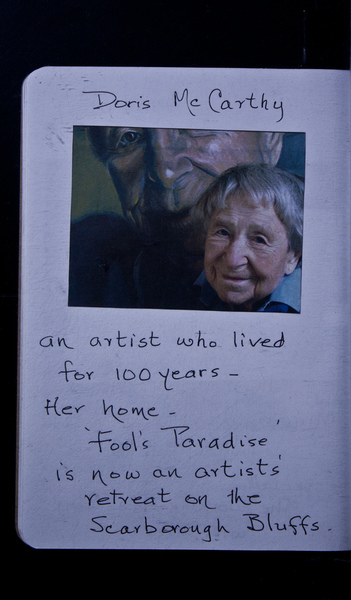 Doris McCarthy
an artist who lived
for 100 years -
Her home -
'Fool's Paradise'
is now an artists'
retreat on the
Scarborough Bluffs.